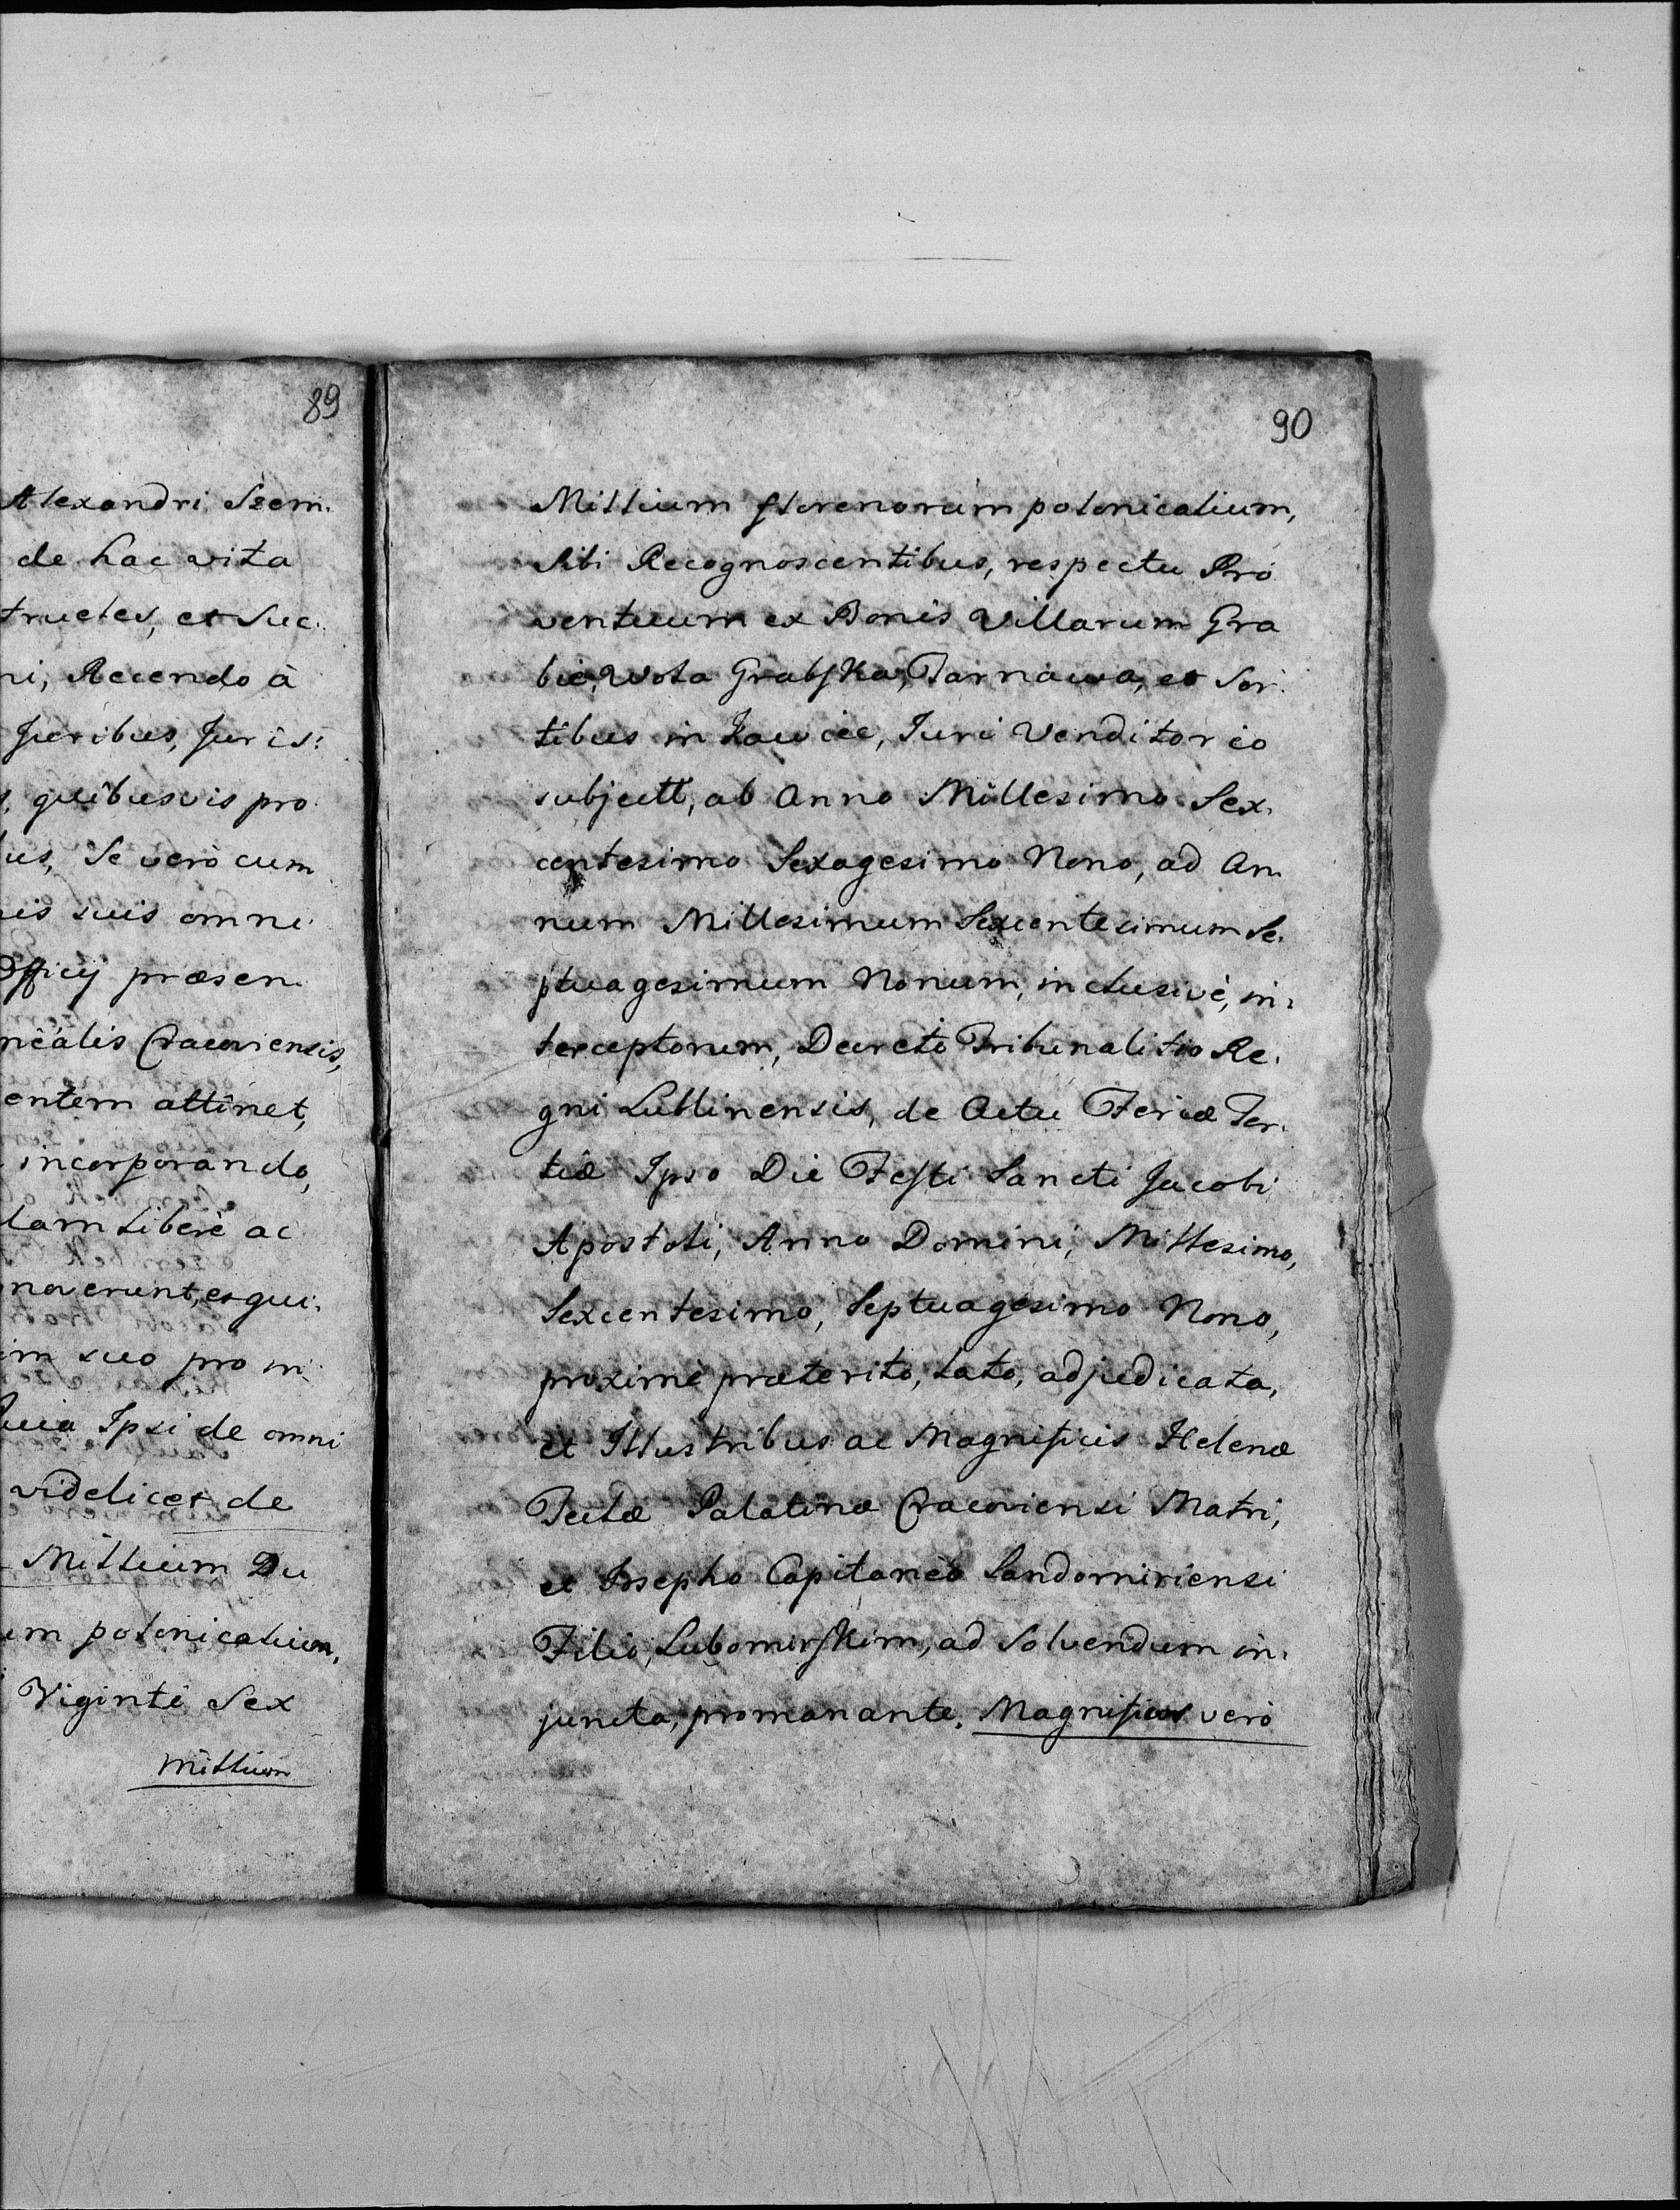 89
Alexandri Szem.
de hac vita
tructes, et Suc.
ni, Recendo à
Juribus, Juris:
quibusvis pro
us, Se verò cum
is suis omni
Officij præsen.
Cracoviensis,
entem attinet,
incorporando,
tam Liberè ac
noverunt, et qui.
im suo pro in
Quia Ipsi de omni
videlicet de
Millium Du
um polonicalium,
Viginti Sex
Millium
90
Millium florenorum polonicalium,
Sibi Recognoscentibus, respectu Pro
ventuum ex Bonis Villarum Gra
bie, Wola Grabska, Tarnawa, et Sor.
tibus in Ławice, Juri Venditorio
subject:, ab Anno Millesimo Sex.
centesimo Sexagesimo Nono, ad An.
num Millesimum Sexcentesimum Se.
ptuagesimum Nonum, inclusivè, in.
terceptorum, Decreto Tribunalitio Re.
gni Lublinensis, de Actu Feriæ Ter.
tiæ Ipso Die Festi Sancti Jacobi
Apostoli, Anno Domini, Millesimo,
Sexcentesimo, Septuagesimo Nono,
proximè præterito, Lato, adjudicata,
et Illustribus ac Magnificis Helenæ
Tectæ Palatinæ Cracoviensi Matri,
et Josepho Capitaneo Sandomiriensi
Filio, Lubomirskim, ad Solvendum in.
juncta, promanante. Magnificos verò